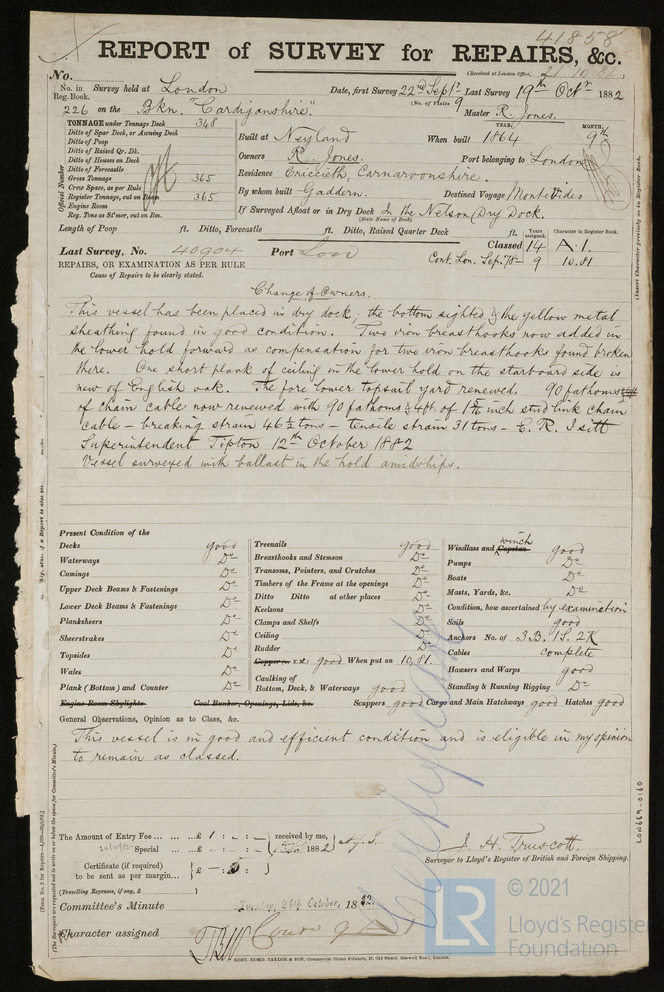 41858
REPORT of SURVEY for REPAIRS, &c.
(Received at London Office, 21.10.82)
No.
No. in Reg. Book. Survey held at London Date, first Survey 22nd Septr Last Survey 19th Octr 1882
(No. of Visits 9
226 on the Bkn. "Cardiganshire". Master R. Jones.
TONNAGE under Tonnage Deck 348
Ditto of Spar Deck, or Awning Deck
Ditto of Poop
Ditto of Raised Qr. Dk.
Ditto of Houses on Deck
Ditto of Forecastle
Gross Tonnage 365
Crew Space, as per Rule
Register Tonnage, cut on Beam 365
Engine Room
Reg. Tons as St'mer, cut on Bm.
Official Number
YEAR. MONTH.
Built at Neyland When built 1864 9th
Owners R. Jones. Port belonging to London
Residence Criccieth, Carnarvonshire.
By whom built Gaddern. Destined Voyage Montivideo
If Surveyed Afloat or in Dry Dock In the Nelson Dry Dock.
(State Name of Dock)
Length of Poop ft. Ditto, Forecastle ft. Ditto, Raised Quarter Deck ft.
Years assigned. Character in Register Book.
Last Survey, No. 40904 Port Lon Classed 14 A.1.
Cont. Lon. Sep. 78 - 9 10.81
REPAIRS, OR EXAMINATION AS PER RULE
Cause of Repairs to be clearly stated.
Change of Owners.
This vessel has been placed in dry dock; the bottom sighted & the yellow metal
sheathing found in good condition. Two iron breasthooks now added in
the lower hold forward as compensation for two iron breasthooks found broken
there. One short plank of ceiling in the lower hold on the starboard side is
new of English oak. The fore lower topsail yard renewed. 90 fathoms
of chain cable now renewed with 90 fathoms & 4ft. of inch stud link chain
cable - breaking strain 46½ tons - tensile strain 31 tons - E. R. Isitt
Superintendent Tipton 12th October 1882
Vessel surveyed with ballast in the hold amidships.
Present Condition of the
Decks good
Waterways Do
Comings Do
Upper Deck Beams & Fastenings Do
Lower Deck Beams & Fastenings Do
Planksheers Do
Sheerstrakes Do
Topsides Do
Wales Do
Plank (Bottom) and Counter Do
Engine Room Skylights Coal Bunker, Openings, Lids, &c.
Treenails good
Breasthooks and Stemson Do
Transoms, Pointers, and Crutches Do
Timbers of the Frame at the openings Do
Ditto Ditto at other places Do
Keelsons Do
Clamps and Shelfs Do
Ceiling Do
Rudder Do
Copper (or Y.M.) good When put on 10.81.
Caulking of
Bottom, Deck, & Waterways good
Windlass and Capstan winch good
Pumps Do
Boats Do
Masts, Yards, &c. Do
Condition, how ascertained by examination
Sails good
Anchors No. of 3 B. 1 S. 2 K
Cables complete
Hawsers and Warps good
Standing & Running Rigging Do
Scuppers good Cargo and Main Hatchways good Hatches good
General Observations, Opinion as to Class, &c.
This vessel is in good and efficient condition and is eligible in my opinion
to remain as classed.
The Amount of Entry Fee £ 1 : - : - received by me,
Special £ - : - : - 1882
Certificate (if required)
to be sent as per margin... £ - : 5 :
(Travelling Expenses, if any, £ )
J. H. Truscott.
Surveyor to Lloyd's Register of British and Foreign Shipping.
Committee's Minute Tuesday, 24th October, 1882.
Character assigned
ROBT. EDMD. TAYLOR & SON, Commercial Steam Printers, 19, Old Street Goswell Road, London.
(Insert Character precisely as in Register Book.)
LON669-0160
© 2021
LR
Lloyd's Register
Foundation